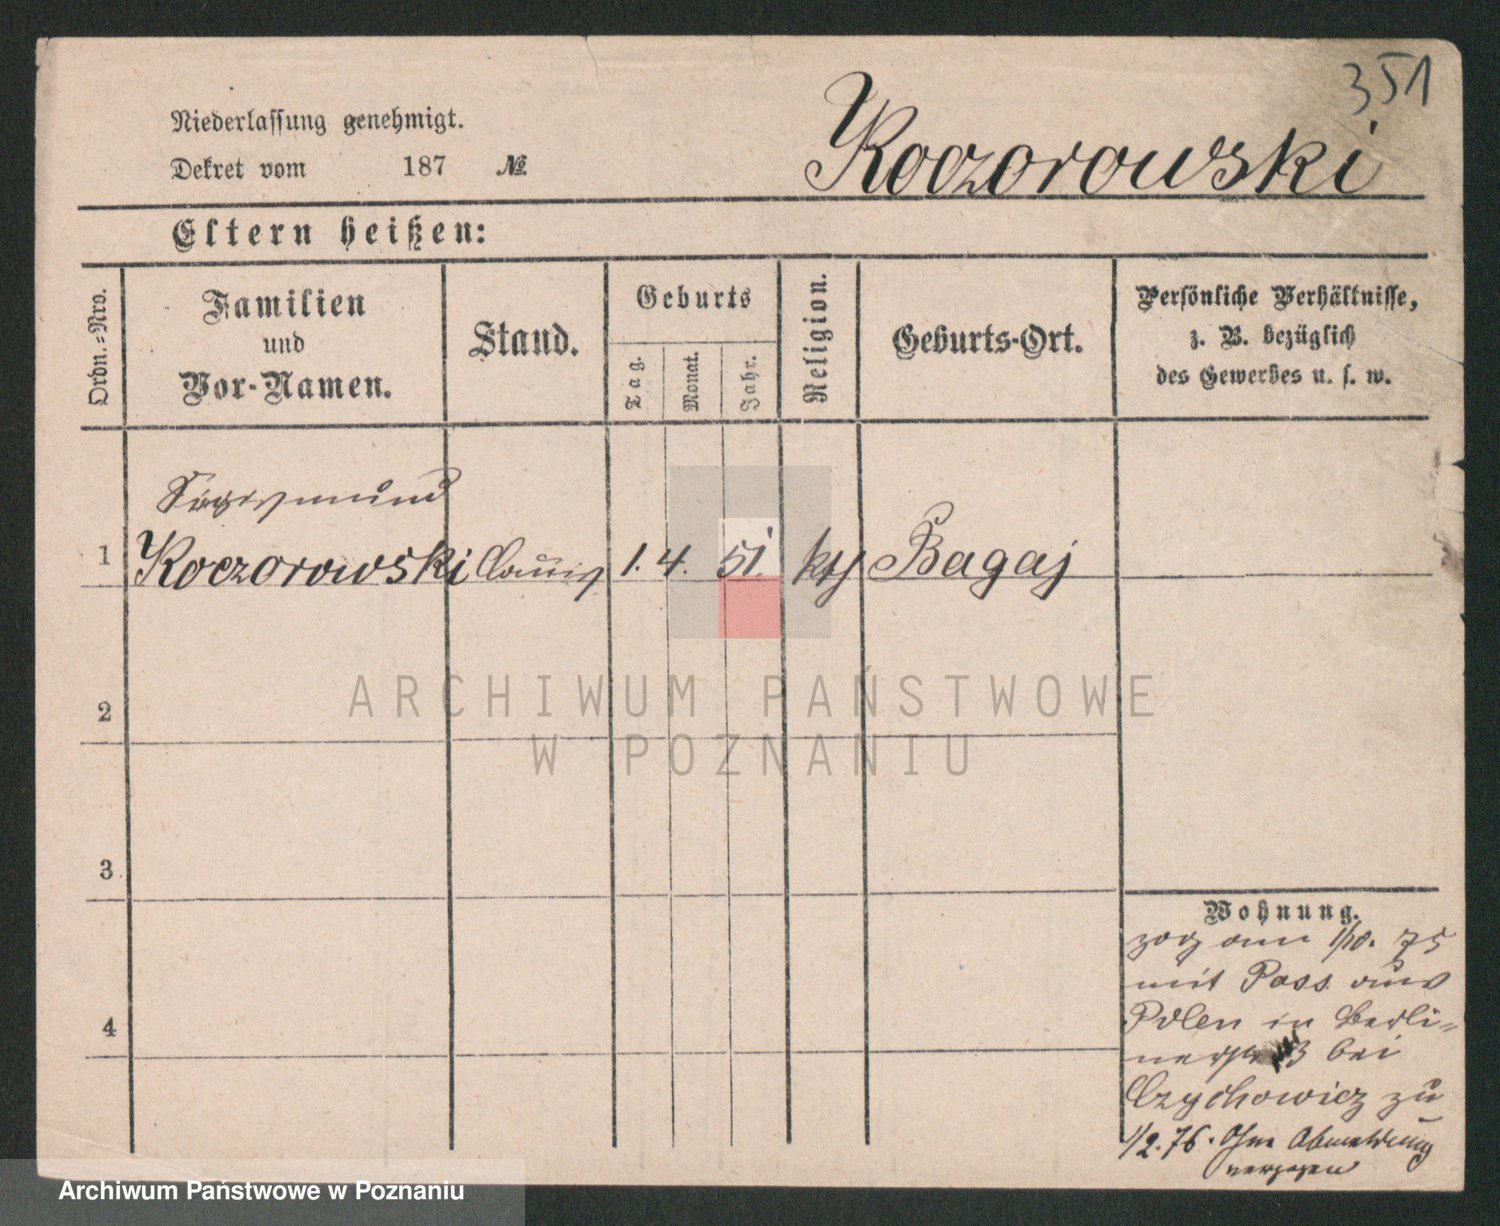 351
Niederlassung genehmigt.
Dekret vom 187 №
Koczorowski
Eltern heißen:
Ordn.-Nro.
Familien
und
Vor-Namen.
Stand.
Geburts
Tag.
Monat.
Jahr.
Religion.
Geburts-Ort.
Persönliche Verhältnisse,
z. B. bezüglich
des Gewerbes u. s. w.
Sigismund
1 Koczorowski 1. 4. 51. kth Bagaj
2
3
4
Wohnung.
zog am 1/10. 75
mit Pass aus
Polen in Berli-
nerstr 3 bei
Czychowicz zu
1/2. 76. Ohne Abmeldung
verzogen
ARCHIWUM PAŃSTWOWE
W POZNANIU
Archiwum Państwowe w Poznaniu